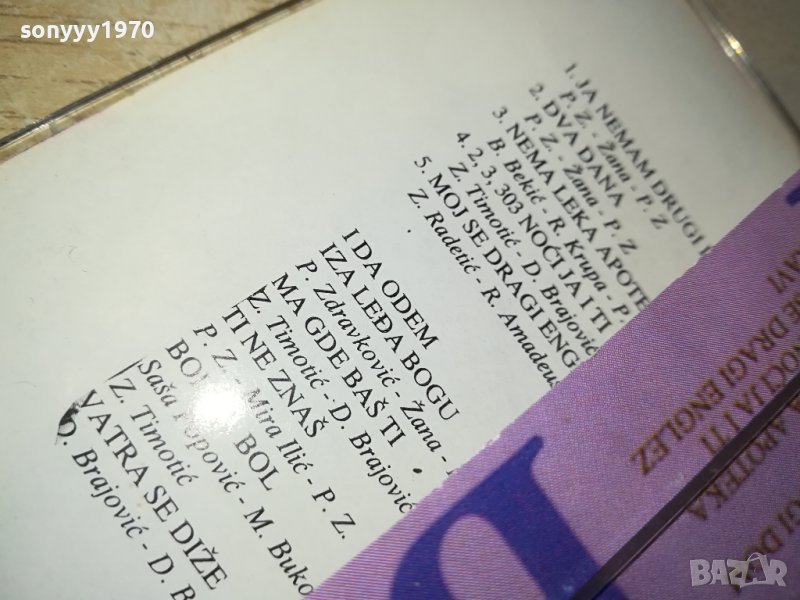 sonyyy1970
1. JA NEMAM DRUGI
P. Z. - Žana - P. Z
2. DVA DANA
P. Z. - Žana - P. Z
3. NEMA LEKA APOTE
B. Bekić - R. Krupa - P.
4. 2, 3, 303 NOĆI JA I TI
Z. Timotić - D. Brajović
5. MOJ SE DRAGI ENG
Z. Radetić - R. Amadeus
I DA ODEM
IZA LEĐA BOGU
P. Zdravković - Žana -
MA GDE BAŠ TI
Z. Timotić - D. Brajović
TI NE ZNAŠ
P. Z. - Mira Ilić - P. Z.
BOL
Saša Popović - M. Buko
VATRA SE DIŽE
Z. Timotić
D. Brajović - D. B
AVI
SE DRAGI ENGLEZ
NOĆI JA I TI
APOTEKA
GI DO
BAZAR